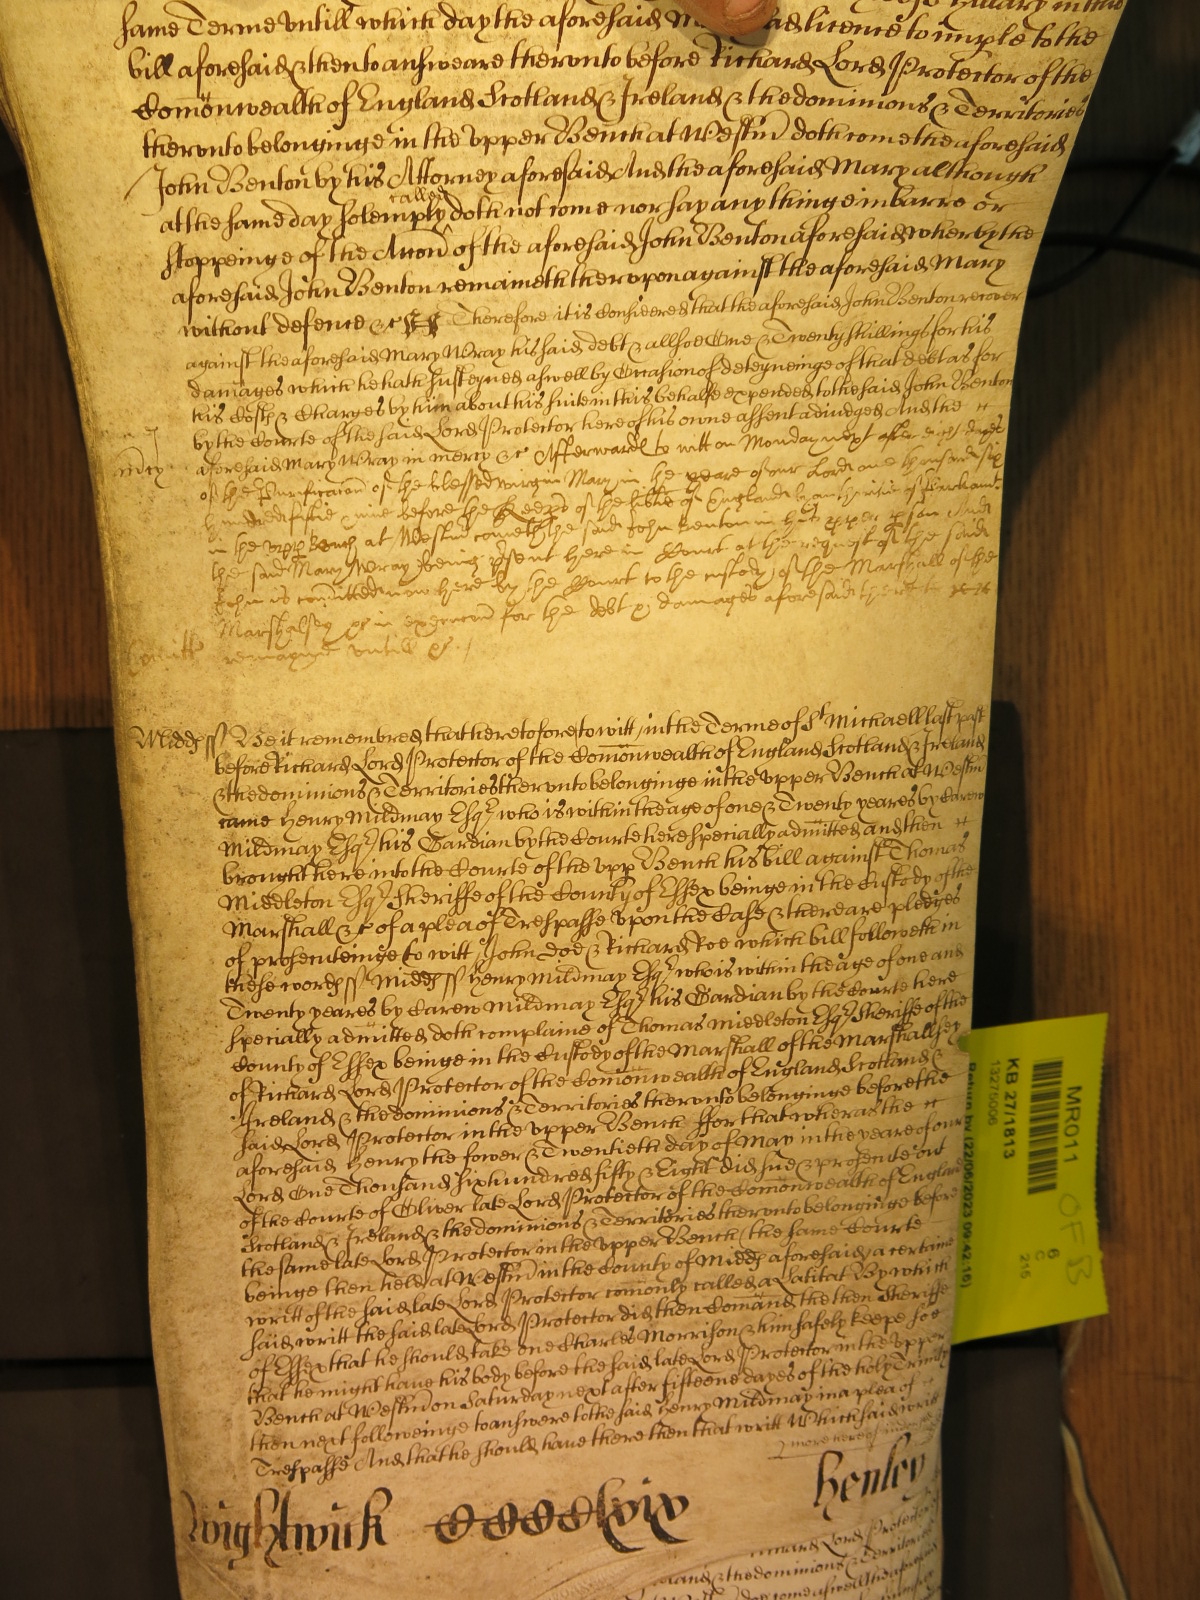 same Terme untill which day the aforesaid had licence to imple to the
bill aforesaid & then to answeare therunto before Richard Lord Protector of the
Comonwealth of England Scotland & Ireland & the dominions & Territories
therunto belonginge in the upper Bench at Westm doth come the aforesaid
John Benton by his Attorney aforesaid And the aforesaid Mary although
at the same day solemply called doth not come nor say any thinge in barre or
stoppeinge of the Accon of the aforesaid John Benton aforesaid wherby the
aforesaid John Benton remaineth therupon against the aforesaid Mary
without defence &c Therefore it is Considered that the aforesaid John Benton recover
against the aforesaid Mary Wray his said debt & allsoe One & Twenty shillings for his
damages which he hath susteyned aswell by Occasion of deteyneinge of that debt as for
his Costs & Charges by him about his suite in this behalfe expended to the said John Benton
by the Courte of the said Lord Protector here of his owne assent adiudged And the
mercy
aforesaid Mary Wray in mercy &c Afterward to witt on Monday next after eight dayes
of the Purificacon of the blessed virgin Mary in the yeare of our Lord one thousand six
hundred fiftie & nine before the Keeprs of the libtie of England by authoritie of Parliamt
in the uppr Bench at Westm cometh the said John Benton in his pper pson And
the said Mary Wray being psent here in Court at the request of the said
John is comitted now here by the Court to the custody of the Marshall of the
Marshalsey &c in execucon for the debt & damages aforesaid there to &c
Comitt
remayne untill &c
Midds ss Be it remembred that heretofore to witt in the Terme of St Michaell last past
before Richard Lord Protector of the Comonwealth of England Scotland & Ireland
& the dominions & Territories therunto belonginge in the upper Bench at Westm
came Henry Mildmay Esqr who is within the age of one & Twenty yeares by Carew
Mildmay Esqr his Gardian by the Courte here specially admitted and then
brought here into the Courte of the upp Bench his bill against Thomas
Middleton Esqr Sheriffe of the County of Essex beinge in the Custody of the
Marshall &c of a plea of Trespasse upon the Case & there are pledges
of prosecuteinge to witt John Doe & Richard Roe which bill followeth in
these words ss Midds ss Henry Mildmay Esqr who is within the age of one and
Twenty yeares by Carew Mildmay Esqr his Gardian by the Courte here
specially admitted doth complaine of Thomas Middleton Esqr Sheriffe of the
County of Essex beinge in the Custody of the Marshall of the Marshallsey
of Richard Lord Protector of the Comonwealth of England Scotland &
Ireland & the dominions & Territories therunto belonginge before the
said Lord Protector in the upper Bench ffor that wheras the
aforesaid Henry the fower & Twentieth day of May in the yeare of our
Lord One Thousand six hundred fifty & Eight did sue & prosecute out
of the Courte of Oliver late Lord Protector of the Comonwealth of England
Scotland & Ireland & the dominions & Territories therunto belonginge before
the same late Lord Protector in the upper Bench (the same Courte
beinge then held at Westm in the County of Midds aforesaid) a certaine
writt of the said late Lord Protector comonly called a Latitat By which
said writt the said late Lord Protector did then Comand the then Sheriffe
of Essex that he should take one Charles Morrison & him safely keepe soe
that he might have his body before the said late Lord Protector in the upper
Bench at Westm on Saturday next after fifteene dayes of the holy Trinity
then next followeinge to answere to the said Henry Mildmay in a plea of
Trespasse And that he should have there then that writt Which said writt
more hereof
Wightwick CCCClxix Henley
Lord Protector
& the dominions & Territories
MR011
KB 27/1813
13275006
Return by (22/06/2023 09:42:16)
OF B
6
C
215